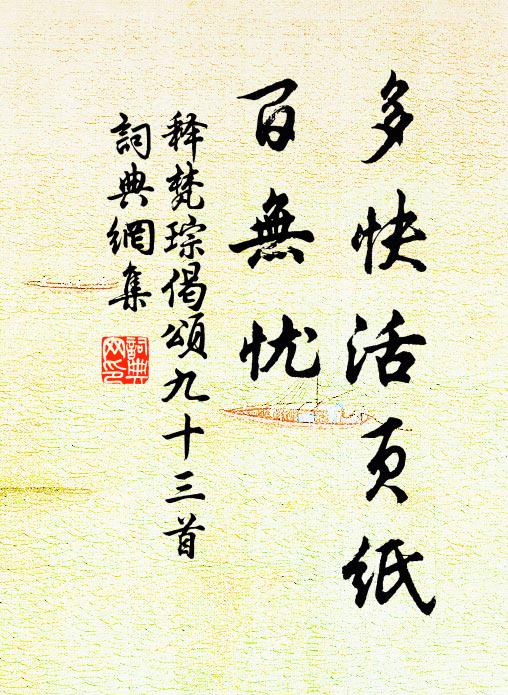 多快活页紙
百無忧
释梵琮偈頌九十三首
詞典網集
詞典
网印